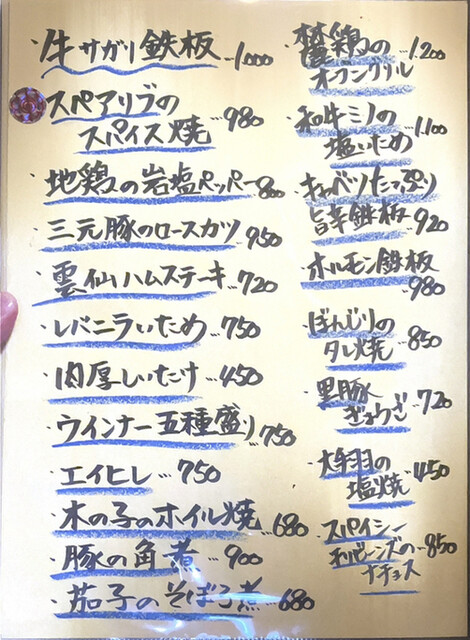 ・牛サガリ鉄板…1000
スペアリブの
スパイス焼 980
・地鶏の岩塩ペッパー 800
・三元豚のロースカツ 950
・雲仙ハムステーキ…720
・レバニラいため…750
・肉厚しいたけ…450
・ウインナー五種盛り 750
・エイヒレ…750
・木の子のホイル焼 680
・豚の角煮…900
・茄子のそぼろ煮…680
鶏の…1200
オーブングリル
・和牛ミノの…1100
塩いため
・キャベツたっぷり
旨辛鉄板 920
・ホルモン鉄板
980
・ぼんじりの
タレ焼 850
・黒豚
ぎょうざ 720
・手羽の
塩焼 450
・スパイシー
チリビーンズの 850
ナチョス